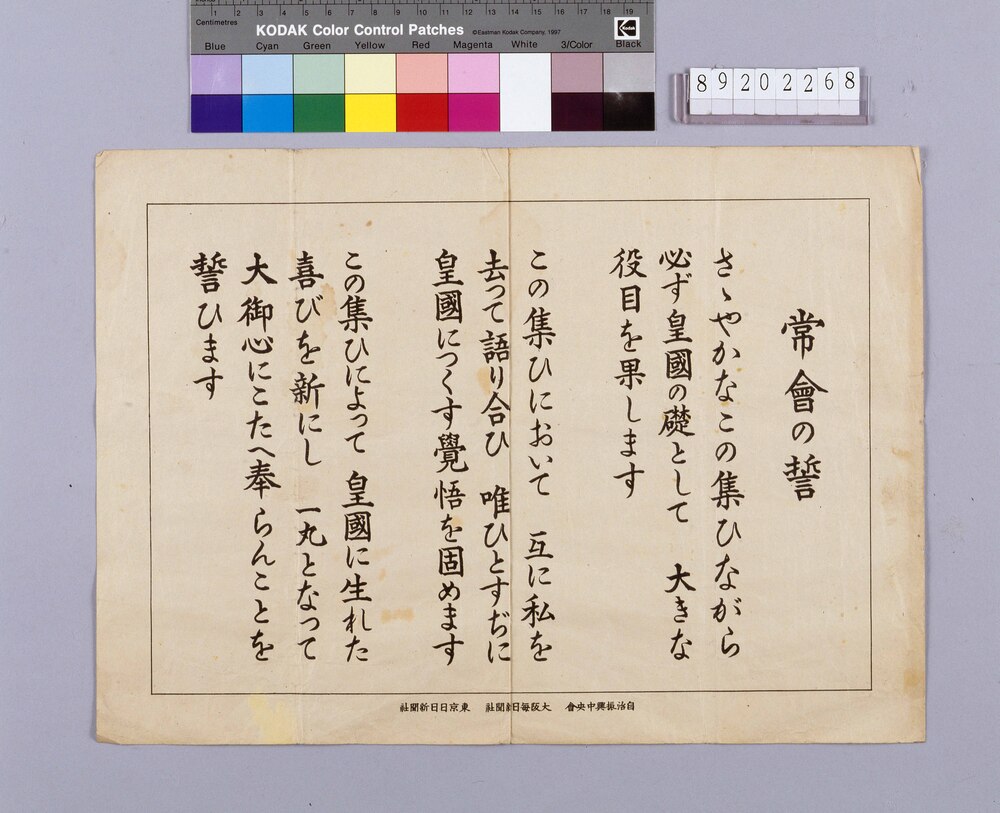 Centimetres 1 2 3 4 5 6 7 8 9 10 11 12 13 14 15 16 17 18 19
KODAK Color Control Patches ©Eastman Kodak Company, 1997 Kodak
Blue Cyan Green Yellow Red Magenta White 3/Color Black
89202268
常會の誓
さゝやかなこの集ひながら
必ず皇國の礎として 大きな
役目を果します
この集ひにおいて 互に私を
去って語り合ひ 唯ひとすぢに
皇國につくす覺悟を固めます
この集ひによって 皇國に生れた
喜びを新にし 一丸となって
大御心にこたへ奉らんことを
誓ひます
社聞新日日京東 社聞新日每阪大 會央中興振治自